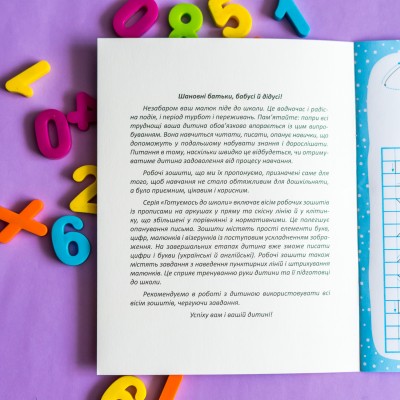 Шановні батьки, бабусі й дідусі!
Незабаром ваш малюк піде до школи. Це водночас і радіс-
на подія, і період турбот і переживань. Пам'ятайте: попри всі
труднощі ваша дитина обов'язково впорається із цим випро-
буванням. Вона навчиться читати, писати, опанує навички, що
допоможуть у подальшому набувати знання і дорослішати.
Питання в тому, наскільки швидко це відбудеться, чи отриму-
ватиме дитина задоволення від процесу навчання.
Робочі зошити, що ми їх пропонуємо, призначені саме для
того, щоб навчання не стало обтяжливим для дошкільняти,
а було приємним, цікавим і корисним.
Серія «Готуємось до школи» включає вісім робочих зошитів
із прописами на аркушах у пряму та скісну лінію й у клітин-
ку, що збільшені у порівнянні з нормативними. Це полегшує
опанування письма. Зошити містять прості елементи букв,
цифр, малюнків і візерунків із поступовим ускладненням зобра-
ження. На завершальних етапах дитина вже зможе писати
цифри і букви (українські й англійські). Робочі зошити також
містять завдання з наведення пунктирних ліній і штрихування
малюнків. Це сприяє тренуванню руки дитини та її підготовці
до школи.
Рекомендуємо в роботі з дитиною використовувати всі
вісім зошитів, чергуючи завдання.
Успіху вам і вашій дитині!